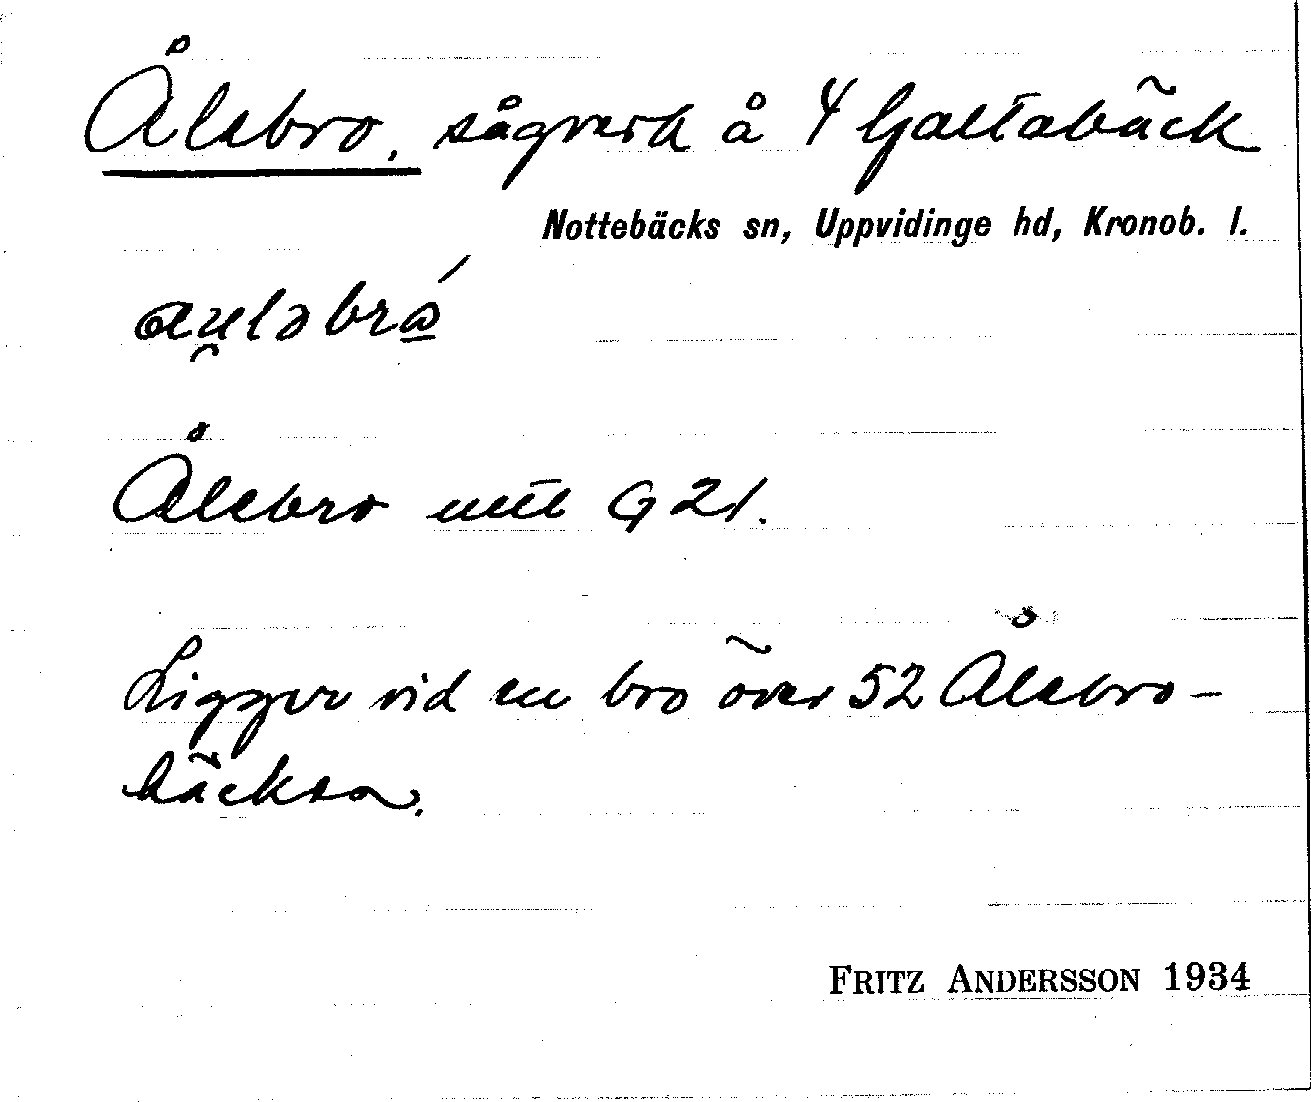 Ålebro, sågverk å 4 Galtabäck
Nottebäcks sn, Uppvidinge hd, Kronob. l.
Ålebro utel G 21.
Ligger vid en bro över 52 Ålebro-
bäcken.
FRITZ ANDERSSON 1934